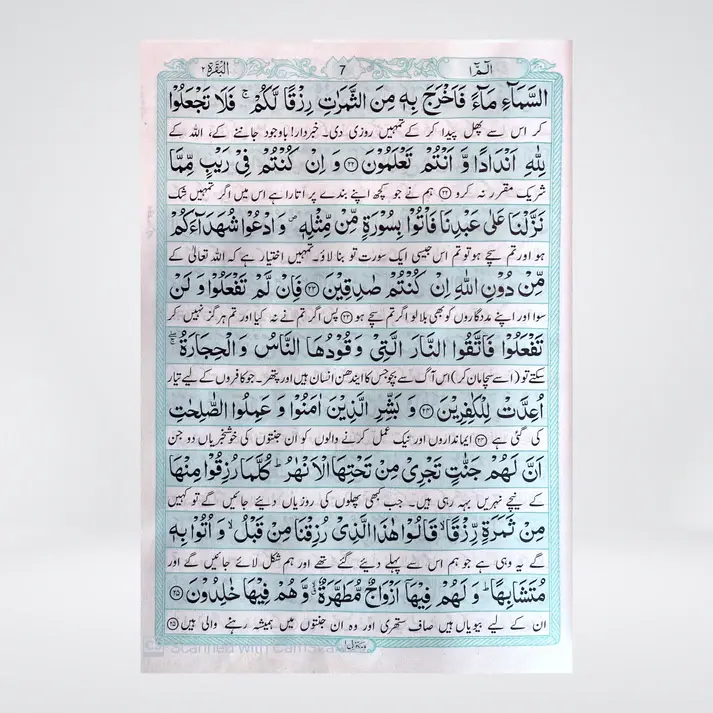 الٓمّٓ ١ 7 البقرة ٢
السَّمَآءِ مَآءً فَاَخْرَجَ بِهٖ مِنَ الثَّمَرٰتِ رِزْقًا لَّكُمْ ۚ فَلَا تَجْعَلُوْا
کر اس سے پھل پیدا کر کے تمہیں روزی دی۔ خبردار! باوجود جاننے کے، اللہ کے
لِلّٰهِ اَنْدَادًا وَّ اَنْتُمْ تَعْلَمُوْنَ ﴿۲۲﴾ وَ اِنْ كُنْتُمْ فِىْ رَيْبٍ مِّمَّا
شریک مقرر نہ کرو ﴿۲۲﴾ ہم نے جو کچھ اپنے بندے پر اتارا ہے اس میں اگر تمہیں شک
نَزَّلْنَا عَلٰى عَبْدِنَا فَاْتُوْا بِسُوْرَةٍ مِّنْ مِّثْلِهٖ ۪ وَ ادْعُوْا شُهَدَآءَكُمْ
ہو اور تم سچے ہو تو تم اس جیسی ایک سورت تو بنا لاؤ۔ تمہیں اختیار ہے کہ اللہ تعالیٰ کے
مِّنْ دُوْنِ اللّٰهِ اِنْ كُنْتُمْ صٰدِقِيْنَ ﴿۲۳﴾ فَاِنْ لَّمْ تَفْعَلُوْا وَ لَنْ
سوا اور اپنے مددگاروں کو بھی بلا لو اگر تم سچے ہو ﴿۲۳﴾ پس اگر تم نے نہ کیا اور تم ہرگز نہیں کر
تَفْعَلُوْا فَاتَّقُوا النَّارَ الَّتِىْ وَقُوْدُهَا النَّاسُ وَ الْحِجَارَةُ ۖۚ
سکتے تو (اسے سچا مان کر) اس آگ سے بچو جس کا ایندھن انسان ہیں اور پتھر۔ جو کافروں کے لیے تیار
اُعِدَّتْ لِلْكٰفِرِيْنَ ﴿۲۴﴾ وَ بَشِّرِ الَّذِيْنَ اٰمَنُوْا وَ عَمِلُوا الصّٰلِحٰتِ
کی گئی ہے ﴿۲۴﴾ ایمانداروں اور نیک عمل کرنے والوں کو ان جنتوں کی خوشخبریاں دو جن
اَنَّ لَهُمْ جَنّٰتٍ تَجْرِىْ مِنْ تَحْتِهَا الْاَنْهٰرُ ؕ كُلَّمَا رُزِقُوْا مِنْهَا
کے نیچے نہریں بہہ رہی ہیں۔ جب کبھی پھلوں کی روزیاں دیئے جائیں گے تو کہیں
مِنْ ثَمَرَةٍ رِّزْقًا ۙ قَالُوْا هٰذَا الَّذِىْ رُزِقْنَا مِنْ قَبْلُ ۙ وَ اُتُوْا بِهٖ
گے یہ وہی ہے جو ہم اس سے پہلے دیئے گئے تھے اور ہم شکل لائے جائیں گے اور
مُتَشَابِهًا ؕ وَ لَهُمْ فِيْهَآ اَزْوَاجٌ مُّطَهَّرَةٌ ۙ وَّ هُمْ فِيْهَا خٰلِدُوْنَ ﴿۲۵﴾
ان کے لیے بیویاں ہیں صاف ستھری اور وہ ان جنتوں میں ہمیشہ رہنے والی ہیں ﴿۲۵﴾
منزل ١
Scanned with CamScanner